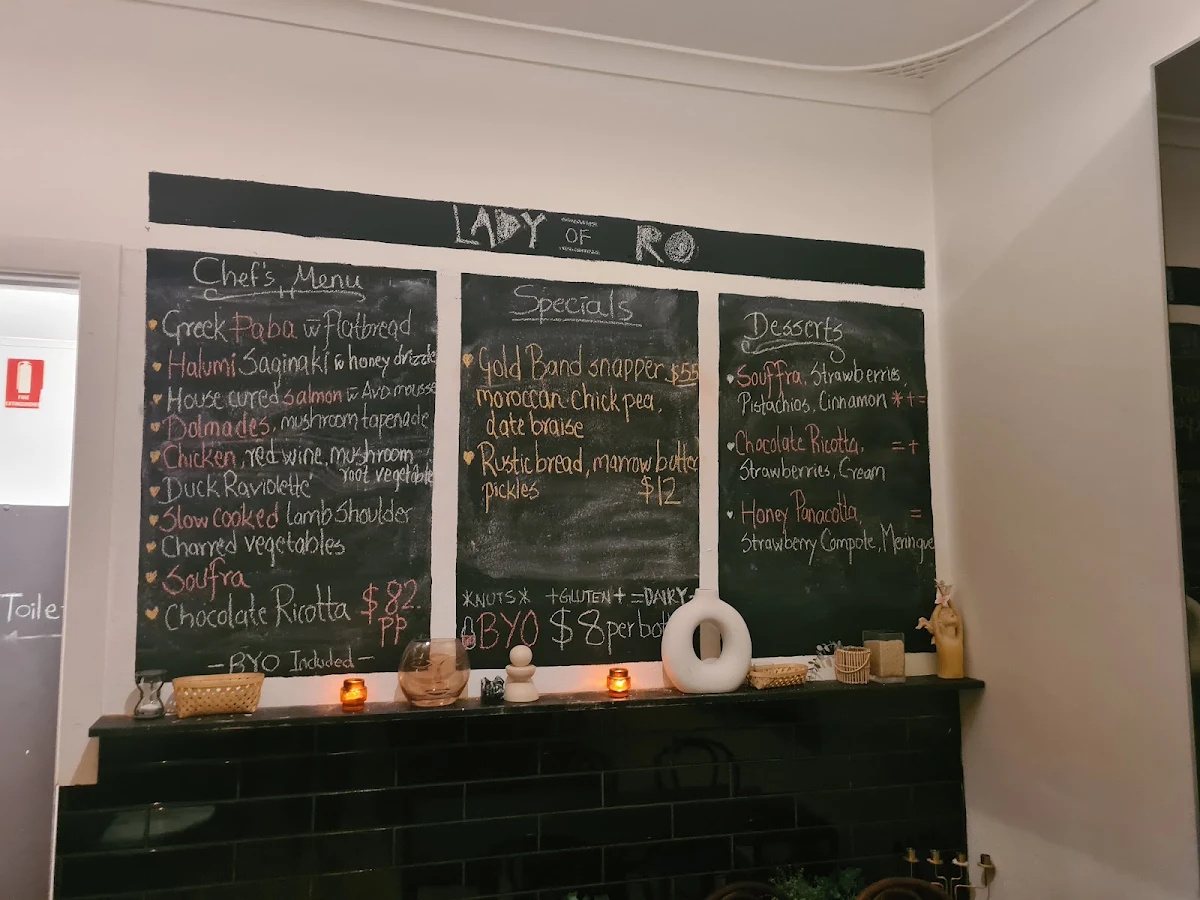 LADY OF RO
Chef's Menu
Greek Paba w̄ flatbread
Halumi Saginaki w̄ honey drizzle
House cured salmon w̄ Avo mousse
Dolmades, mushroom tapenade
Chicken, red wine, mushroom
root vegetable
Duck Raviolette
Slow cooked lamb Shoulder
Charred vegetables
Soufra
Chocolate Ricotta $82
PP
-BYO Included-
Specials
Gold Band snapper $55
moroccan chick pea,
date braise
Rustic bread, marrow butter
pickles $12
*NUTS* +GLUTEN+ =DAIRY=
BYO $8 per bot
Desserts
Souffra, Strawberries,
Pistachios, Cinnamon *+=
Chocolate Ricotta, =+
Strawberries, Cream
Honey Panacotta, =
Strawberry Compote, Meringue
FIRE
EXTINGUISHER
Toile